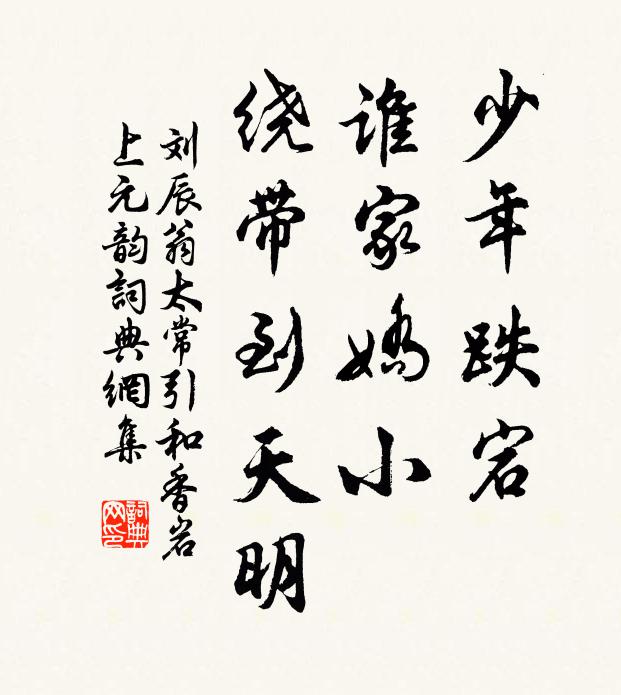 少年跌宕
誰家嬌小
绕带到天明
刘辰翁太常引和香岩
上元韵詞典網集
詞典
网印